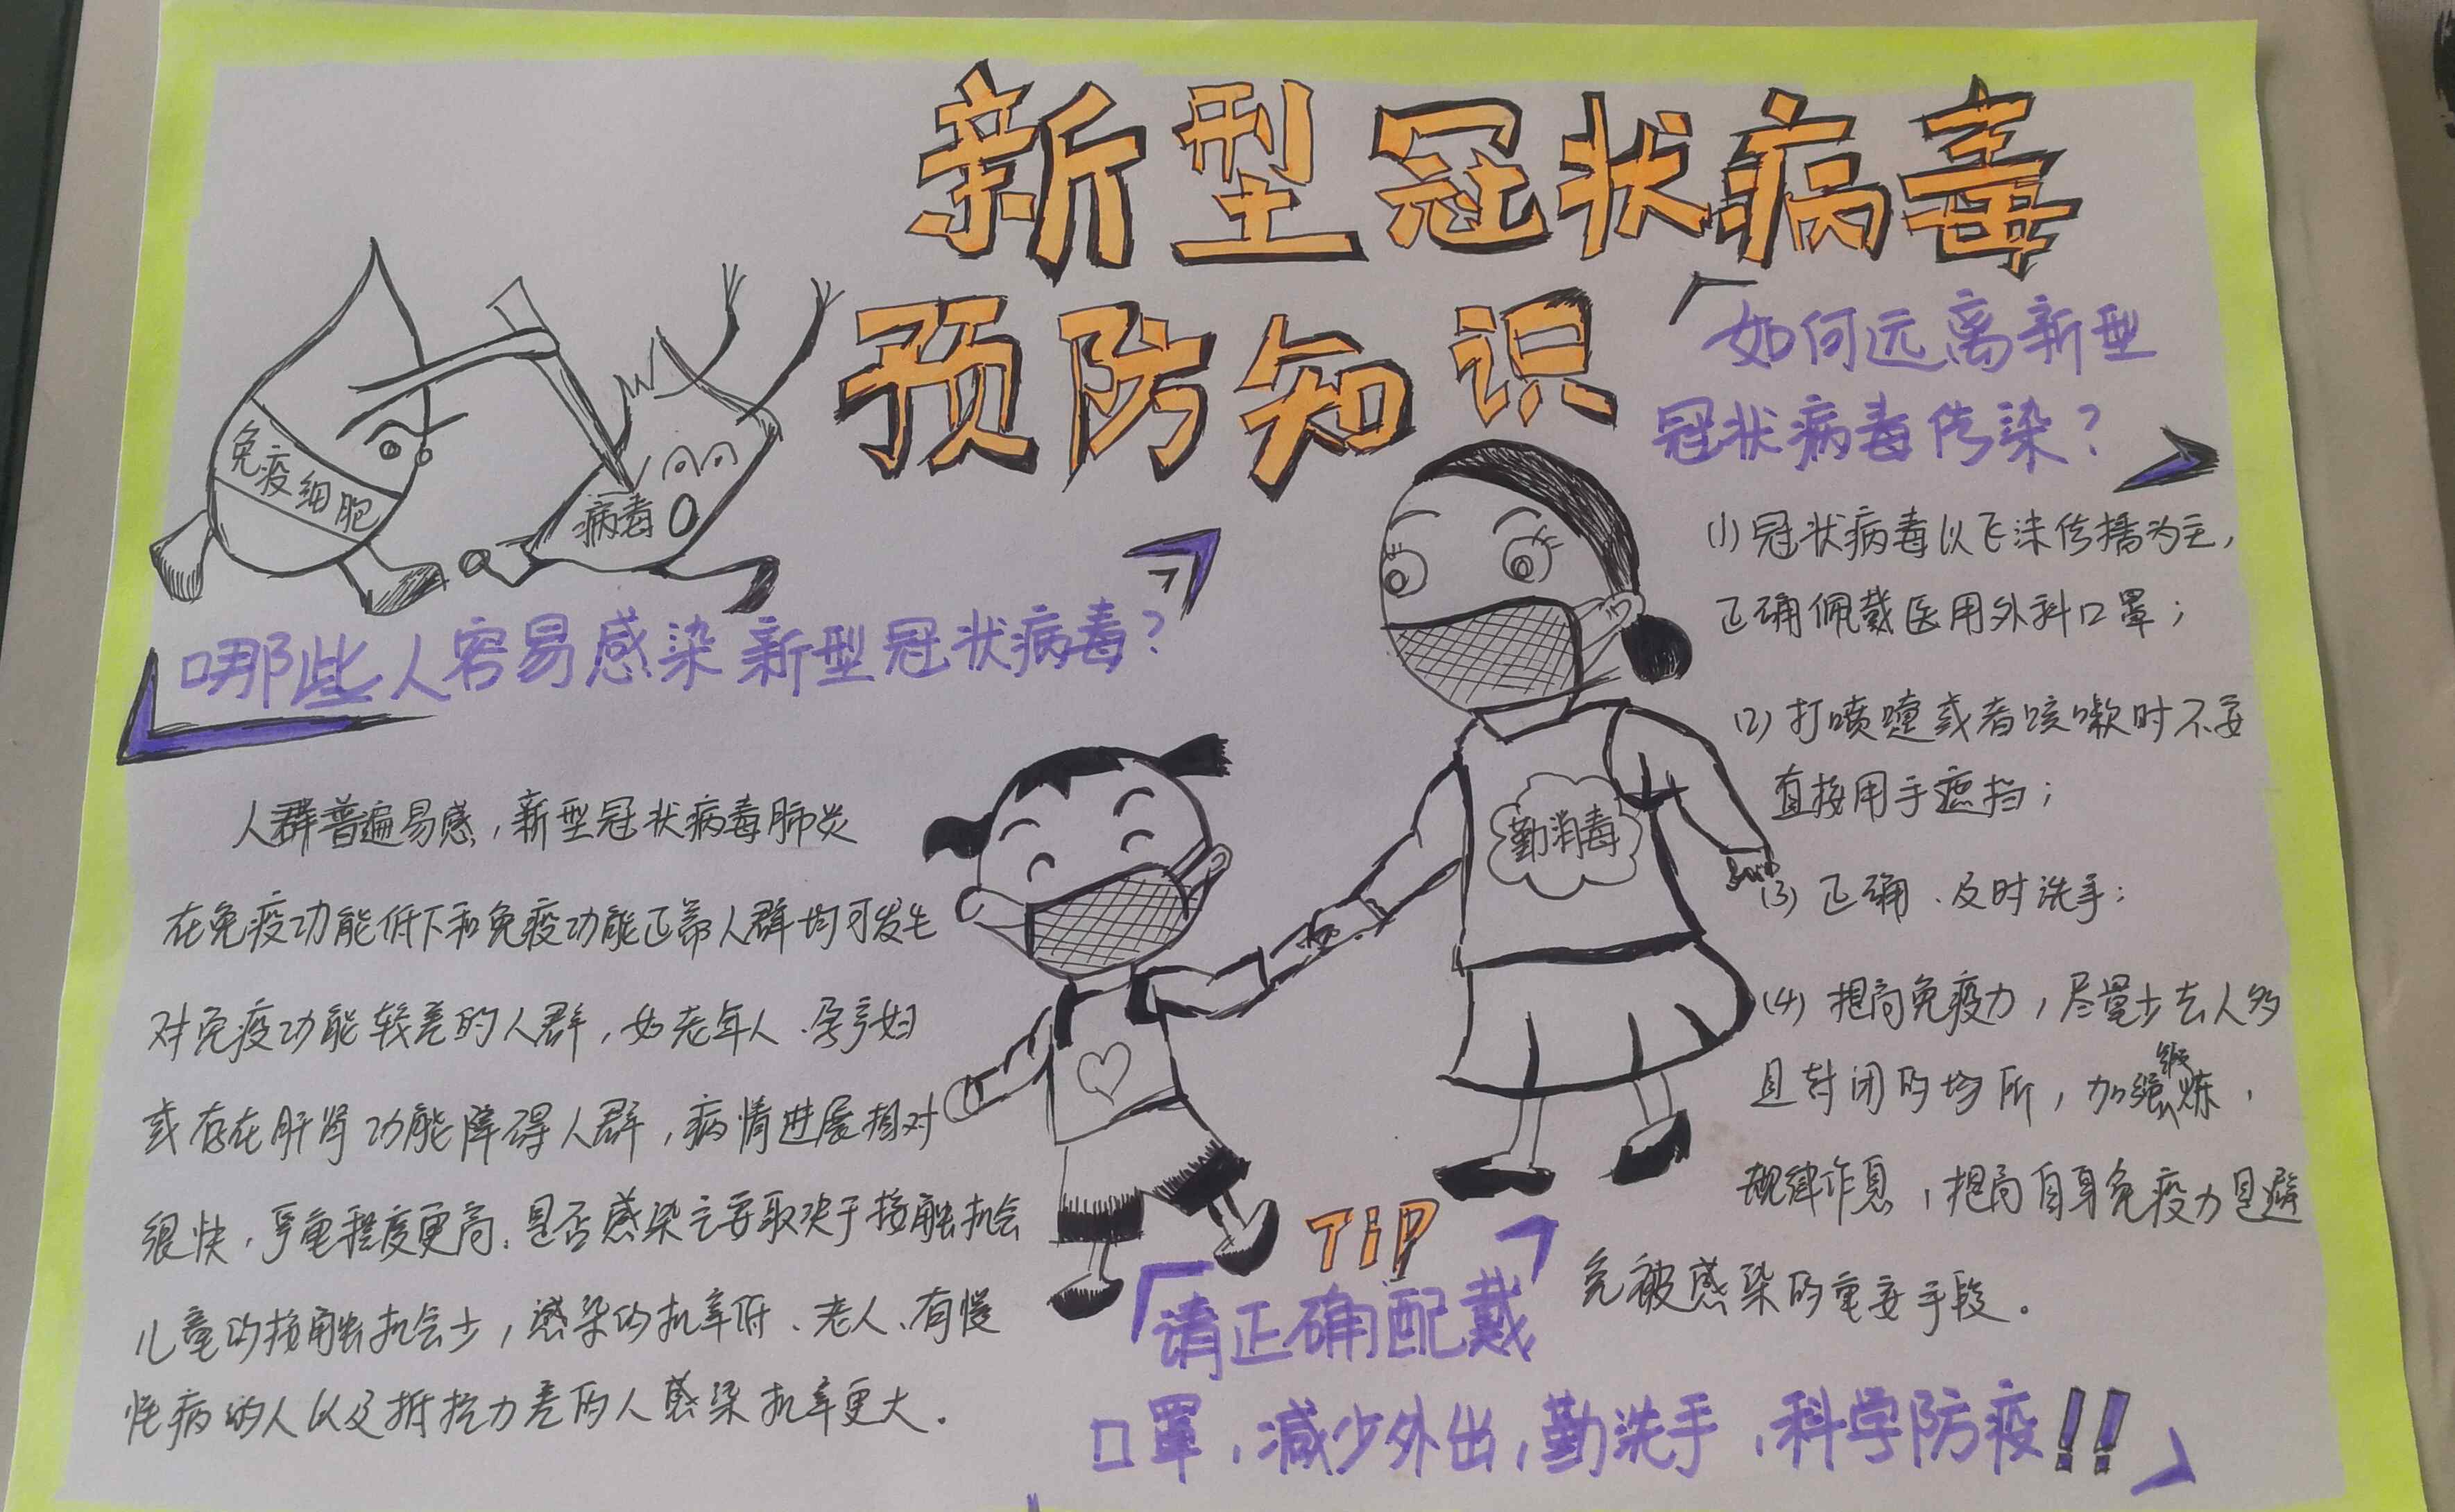 新型冠状病毒
预防知识
免疫细胞
病毒
哪些人容易感染新型冠状病毒?
人群普遍易感,新型冠状病毒肺炎
在免疫功能低下和免疫功能正常人群均可发生
对免疫功能较差的人群,如老年人、孕产妇
或存在肝肾功能障碍人群,病情进展相对
很快,严重程度更高。是否感染主要取决于接触机会
儿童的接触机会少,感染的机率低、老人、有慢
性病的人以及抵抗力差的人感染机率更大。
勤消毒
如何远离新型
冠状病毒传染?
(1)冠状病毒以飞沫传播为主,
正确佩戴医用外科口罩;
(2)打喷嚏或者咳嗽时不要
直接用手遮挡;
(3)正确、及时洗手:
(4)提高免疫力,尽量少去人多
且封闭的场所,加强锻炼,
规律作息,提高自身免疫力是避
免被感染的重要手段。
TIP
请正确配戴
口罩,减少外出,勤洗手,科学防疫!!